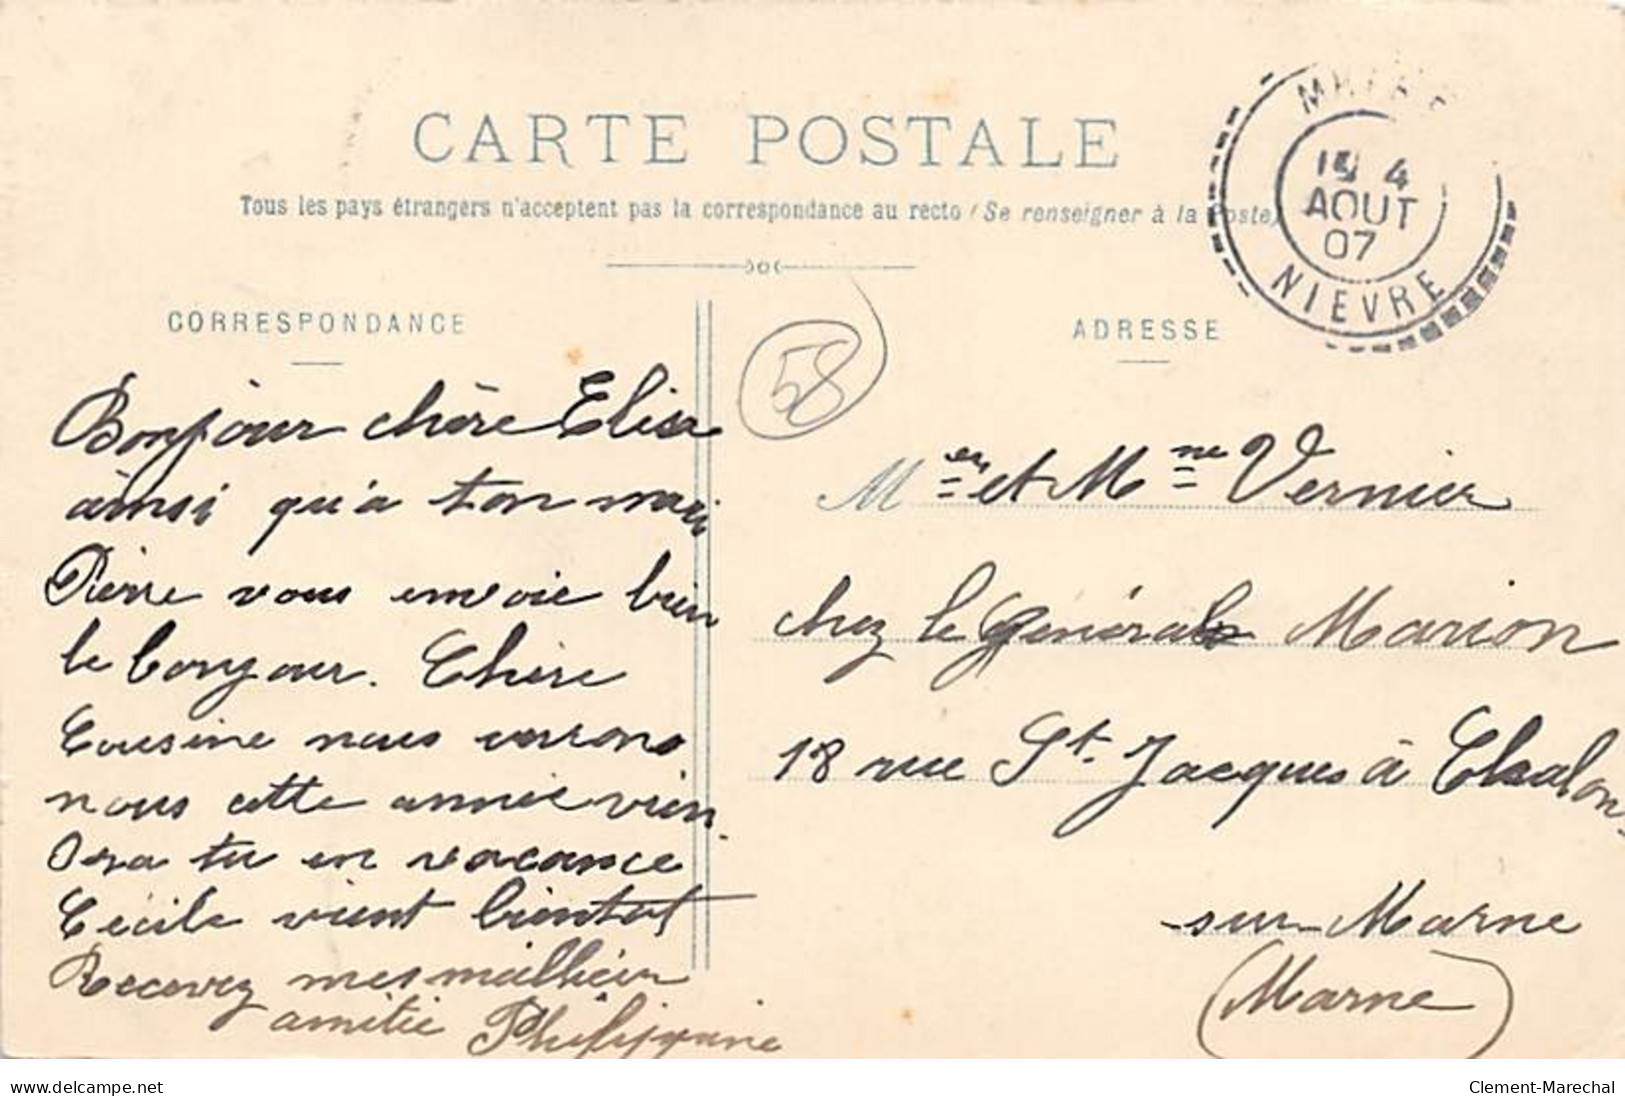 CARTE POSTALE
Tous les pays étrangers n'acceptent pas la correspondance au recto (Se renseigner à la Poste)
4
AOUT
07
NIEVRE
CORRESPONDANCE
ADRESSE
58
Bonjour chère Elisa
ainsi qu'a ton mari
Pierre vous envoie bien
le bonjour. Chère
Cousine nous verrons
nous cette année vien
dra tu en vacance
Cécile vient bientot
Recevez mes meilleur
amitié Philippine
Mer et Mme Vernier
chez le général Marion
18 rue St. Jacques à Chalon
sur Marne
(Marne)
www.delcampe.net
Clement-Marechal